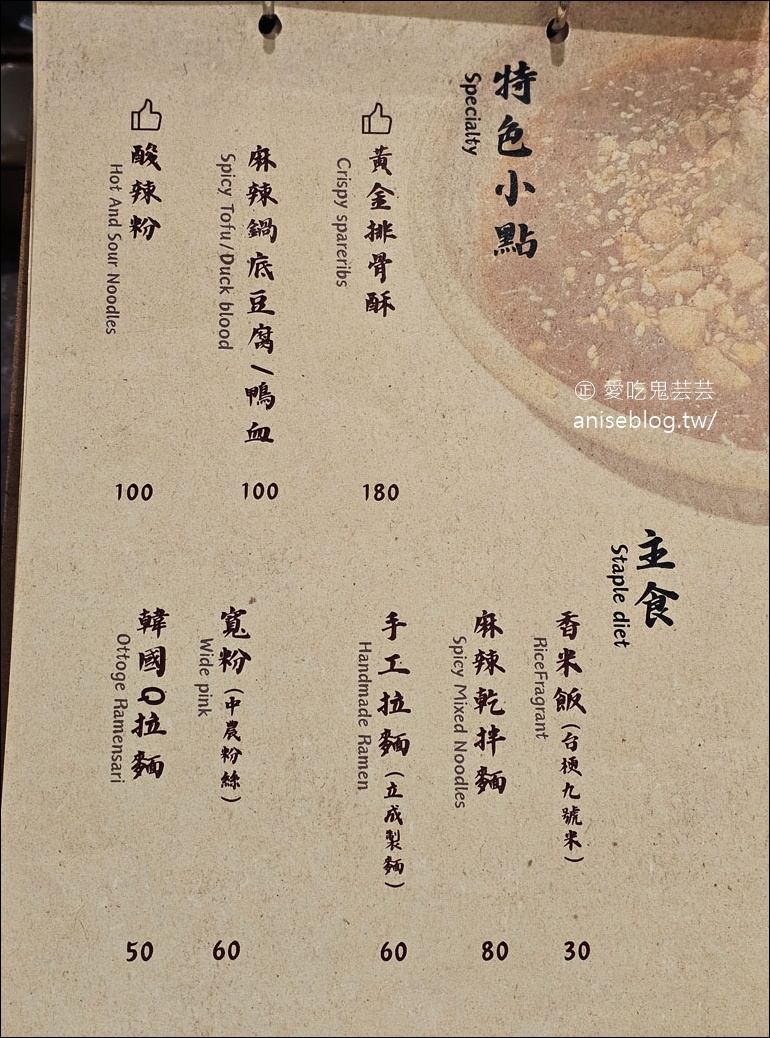 特色小點
Specialty
黃金排骨酥
Crispy spareribs
180
麻辣鍋底豆腐/鴨血
Spicy Tofu/Duck blood
100
酸辣粉
Hot And Sour Noodles
100
主食
Staple diet
香米飯(台梗九號米)
RiceFragrant
30
麻辣乾拌麵
Spicy Mixed Noodles
80
手工拉麵(立成製麵)
Handmade Ramen
60
寬粉(中農粉絲)
Wide pink
60
韓國Q拉麵
Ottoge Ramensari
50
㊣ 愛吃鬼芸芸
aniseblog.tw/